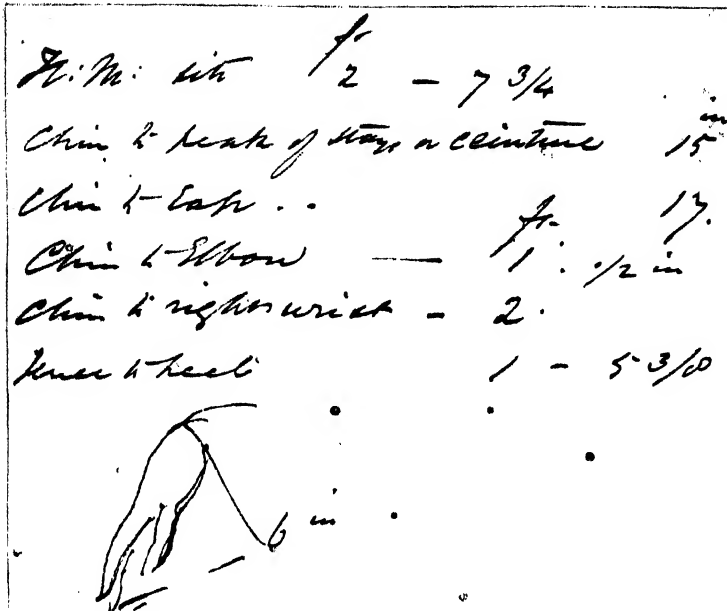 H: M: sits ft. 2 – 7 3/4
Chin to peak of stays or ceinture 15 in
Chin to Lap .. 17.
Chin to Elbow — ft. 1 . 1/2 in
Chin to right wrist – 2.
Knee to heel 1 – 5 3/8
6 in